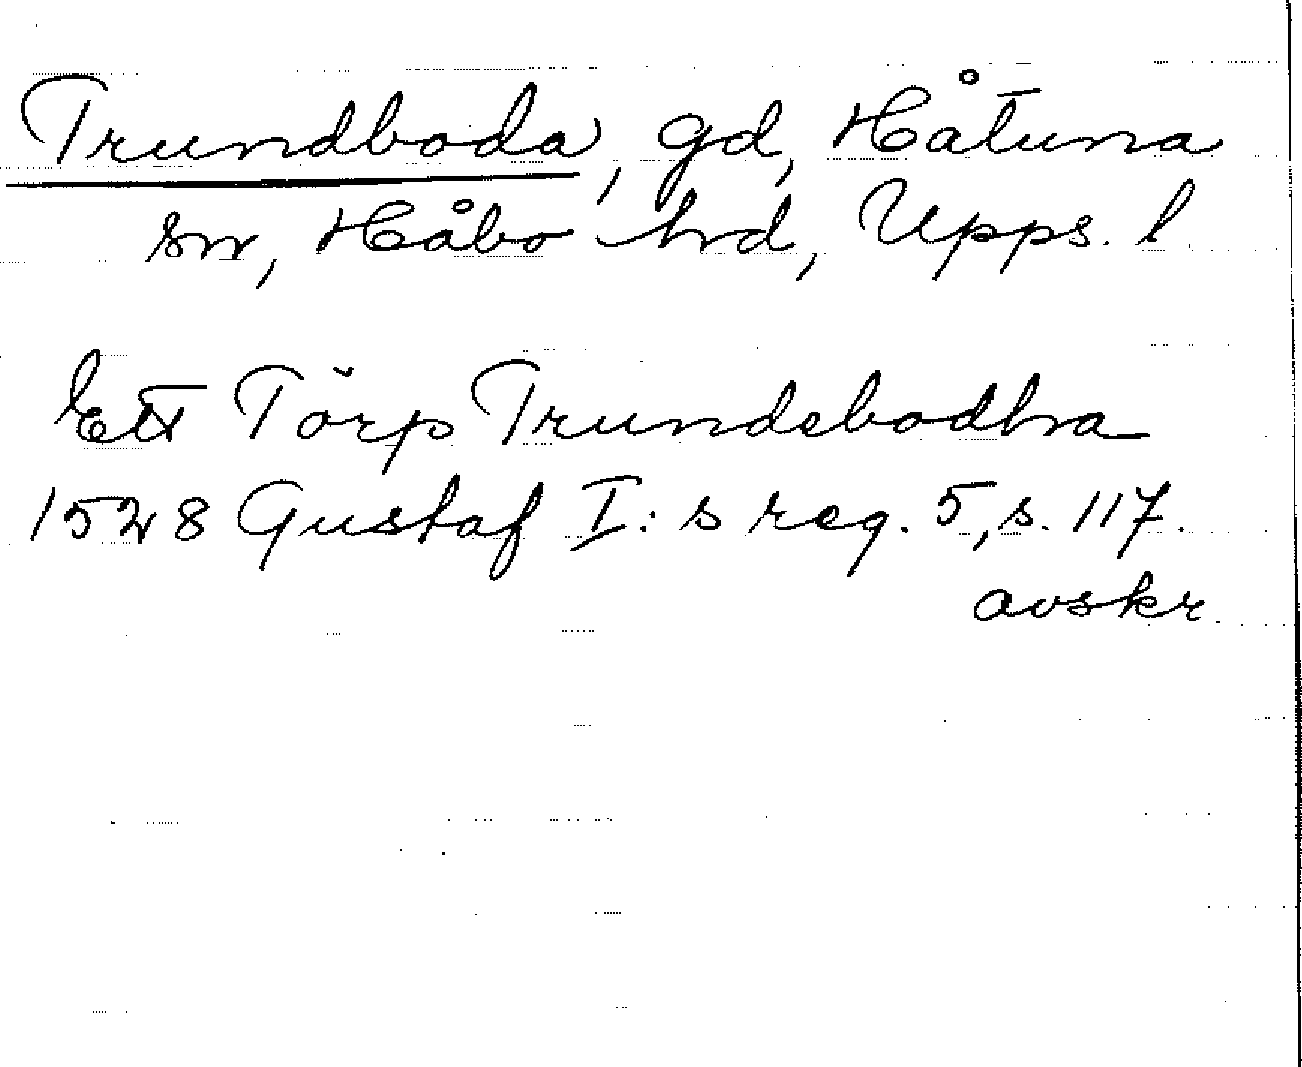 Trundboda, gd, Håtuna
sn, Håbo hrd, Upps. l
Ett Törp Trundebodha
1528 Gustaf I:s reg. 5, s. 117.
avskr.